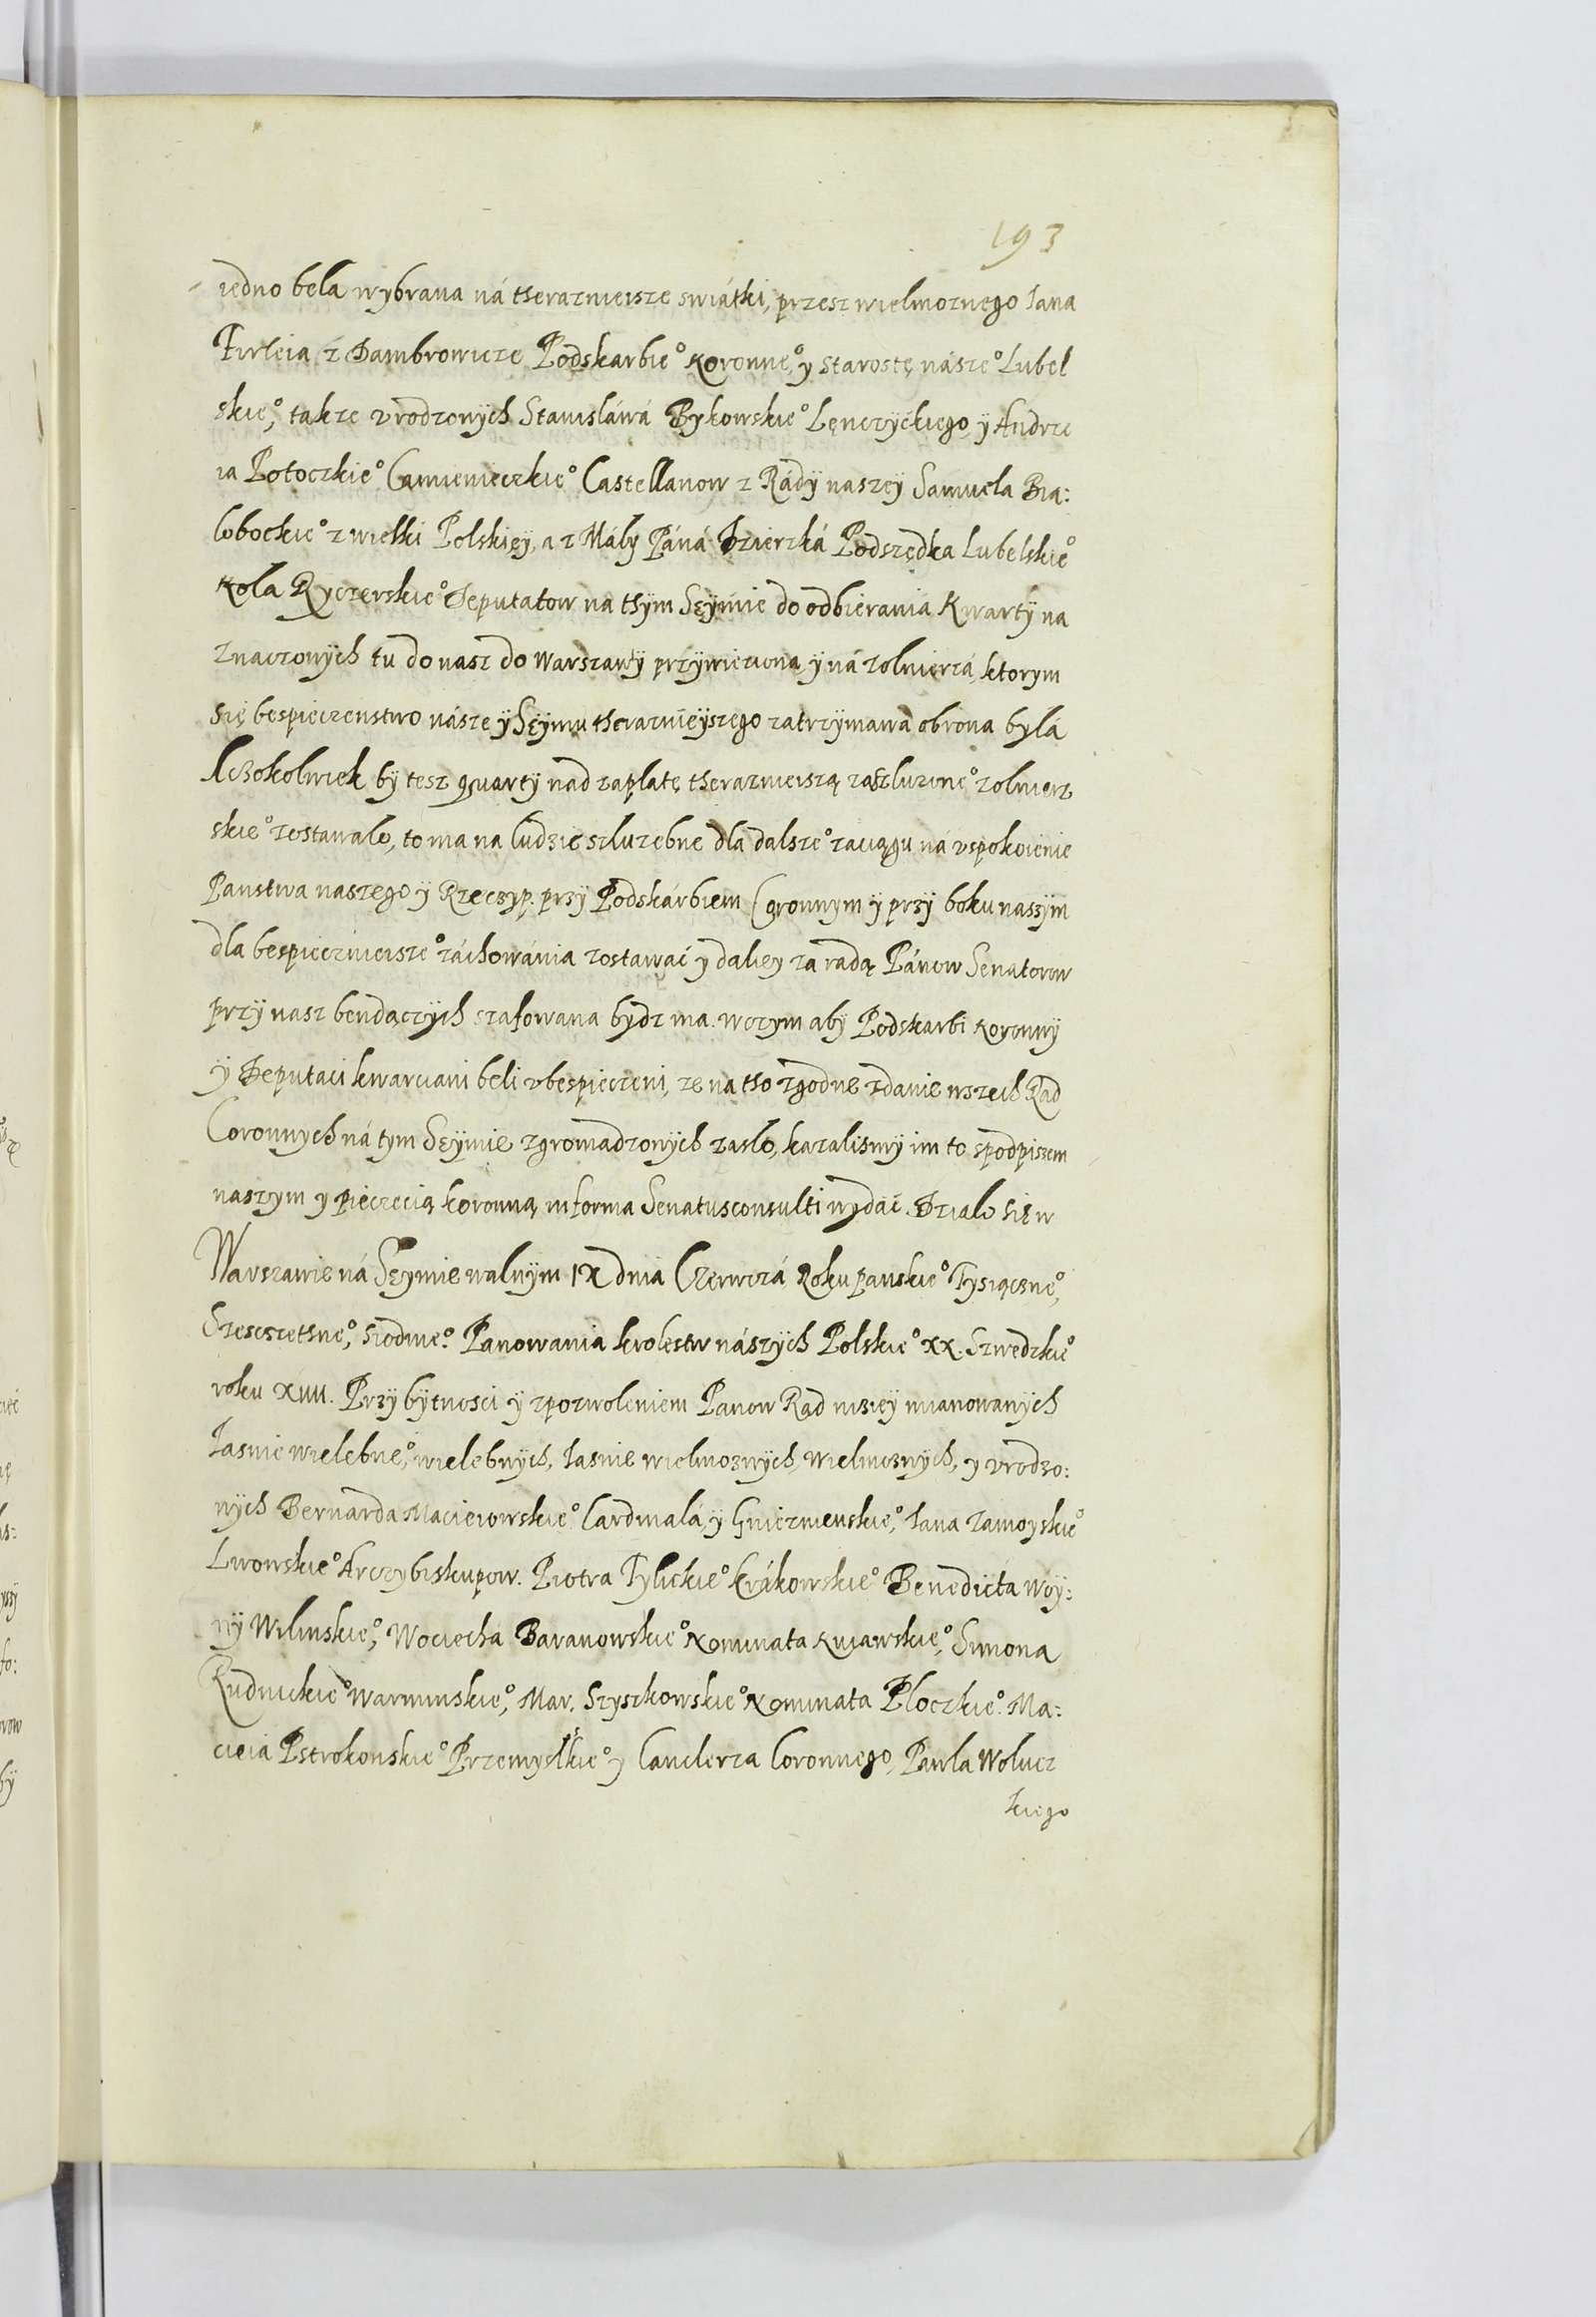 193
iedno bela wybrana ná therazneisze swiátki, przesz wielmoznego Iana
Firleia z Dambrowicze Podskarbie° Koronne°, y Starostę násze° Lubel
skie°, takze vrodzonÿch Stanisláwá Bykowskie° Lęnczÿckiego, ÿ Andrze
ia Potoczkie° Camienieczkie° Castellanow z Rádÿ naszeÿ Samuela Bia:
lobockie° z wielki Polskieÿ, a z Málÿ Páná Dzierzká Podszędka Lubelskie°
Kola Ryczerskie° Deputatow na thÿm Sęÿmie do odbierania Kwartÿ na
Znaczonÿch tu do nasz do Warszawÿ przÿwieziona, ÿ ná zolnierzá, ktorym
się bespieczenstwo násze ÿ Sęÿmu theraznieÿszego zatrzÿmawa obrona bÿlá
Iczokolwiek bÿ tesz quartÿ nad zaplatę therazneiszą zaszluzone° zolnierz
skie° zostawalo, to ma na ludzie szluzebne dla dalsze° zaciągu ná vspokoienie
Panstwa naszego ÿ Rzeczyp. przÿ Podskárbiem Coronnym ÿ przÿ boku naszÿm
dla bespiecznieisze° záchowánia zostawać y daliey za radą Pánow Senatorow
przÿ nasz bendączÿch szafowana bÿdz ma. wczym abÿ Podskarbi Koronnÿ
ÿ Deputaci kwarciani beli vbespieczeni, ze na tho zgodne zdanie wszech Rad
Coronnych ná tym Sęÿmie zgromadzonÿch zaslo, kazalismÿ im to spodpiszem
naszym y pieczecią koronną in forma Senatusconsulti wydać. Dzialo się w
Warszawie ná Sęymie walnÿm IX dnia Czerwczá Roku panskie° Tysiączne°,
Szescsethne°, siodme°. Panowania krolestw nászÿch Polskie° XX. Szwedzkie°
roku XIIII. Przÿ bÿtnosci ÿ zpozwoleniem Panow Rad niszeÿ mianowanÿch
Iasnie wielebne°, wielebnÿch, Iasnie wielmoznÿch, wielmoznÿch, y vrodzo:
nÿch Bernarda Macieiowskie° Cardinalá, ÿ Gnieznienskie°, Iana Zamoyskie°
Lwowskie° Arczybiskupow. Piotra Tÿlickie° Krákowskie° Benedicta Woÿ:
nÿ Wilinskie°, Wociecha Baranowskie° Nominata Kuiawskie°, Simona
Rudnickie° Warminskie°, Mar. Szyszkowskie° Nominata Ploczkie°. Ma:
cieia Pstrokonskie° Przemyslskie° y Canclerza Coronnego, Pawla Wolucz
kiego